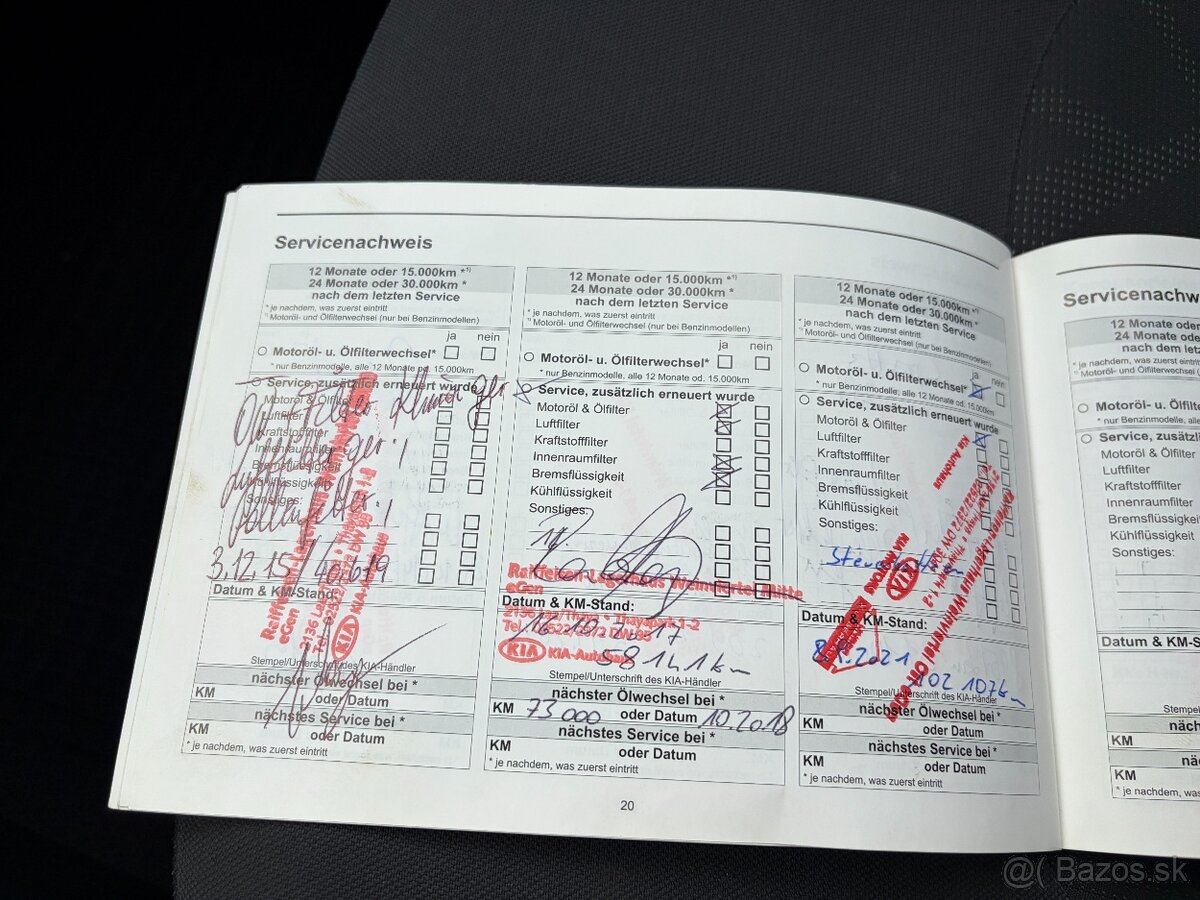 Servicenachweis
12 Monate oder 15.000km *¹⁾
24 Monate oder 30.000km *
nach dem letzten Service
* je nachdem, was zuerst eintritt
¹⁾ Motoröl- und Ölfilterwechsel (nur bei Benzinmodellen)
ja nein
Motoröl- u. Ölfilterwechsel*
* nur Benzinmodelle, alle 12 Monate od. 15.000km
Service, zusätzlich erneuert wurde
Motoröl & Ölfilter
Luftfilter
Kraftstofffilter
Innenraumfilter
Bremsflüssigkeit
Kühlflüssigkeit
Sonstiges:
3.12.15
Datum & KM-Stand:
KIA
KIA-Autohaus
Stempel/Unterschrift des KIA-Händler
nächster Ölwechsel bei *
KM oder Datum
nächstes Service bei *
KM oder Datum
* je nachdem, was zuerst eintritt
12 Monate oder 15.000km *¹⁾
24 Monate oder 30.000km *
nach dem letzten Service
* je nachdem, was zuerst eintritt
¹⁾ Motoröl- und Ölfilterwechsel (nur bei Benzinmodellen)
ja nein
Motoröl- u. Ölfilterwechsel*
* nur Benzinmodelle, alle 12 Monate od. 15.000km
Service, zusätzlich erneuert wurde
Motoröl & Ölfilter
Luftfilter
Kraftstofffilter
Innenraumfilter
Bremsflüssigkeit
Kühlflüssigkeit
Sonstiges:
Raiffeisen-Lagerhaus Weinviertel Mitte
eGen
Datum & KM-Stand:
2136 Laa/Thaya • Thayapark 1-2
KIA KIA-Autohaus
58141km
Stempel/Unterschrift des KIA-Händler
nächster Ölwechsel bei *
KM 73000 oder Datum 10.2018
nächstes Service bei *
KM oder Datum
* je nachdem, was zuerst eintritt
12 Monate oder 15.000km *¹⁾
24 Monate oder 30.000km *
nach dem letzten Service
* je nachdem, was zuerst eintritt
¹⁾ Motoröl- und Ölfilterwechsel (nur bei Benzinmodellen)
ja nein
Motoröl- u. Ölfilterwechsel*
* nur Benzinmodelle, alle 12 Monate od. 15.000km
Service, zusätzlich erneuert wurde
Motoröl & Ölfilter
Luftfilter
Kraftstofffilter
Innenraumfilter
Bremsflüssigkeit
Kühlflüssigkeit
Sonstiges:
Kia Autohaus
KIA MOTORS
KIA
Datum & KM-Stand:
102107km
Stempel/Unterschrift des KIA-Händler
nächster Ölwechsel bei *
KM oder Datum
nächstes Service bei *
KM oder Datum
* je nachdem, was zuerst eintritt
20
Servicenachw
12 Monate
24 Monate
nach dem le
* je nachdem, was zuerst eintritt
Motoröl- u. Ölfilt
* nur Benzinmodelle, alle 12
Service, zusätzl
Motoröl & Ölfilter
Luftfilter
Kraftstofffilter
Innenraumfilter
Bremsflüssigkeit
Kühlflüssigkeit
Sonstiges:
Datum & KM-S
Stempel
näch
KM
nä
KM
* je nachdem, was
@( Bazos.sk